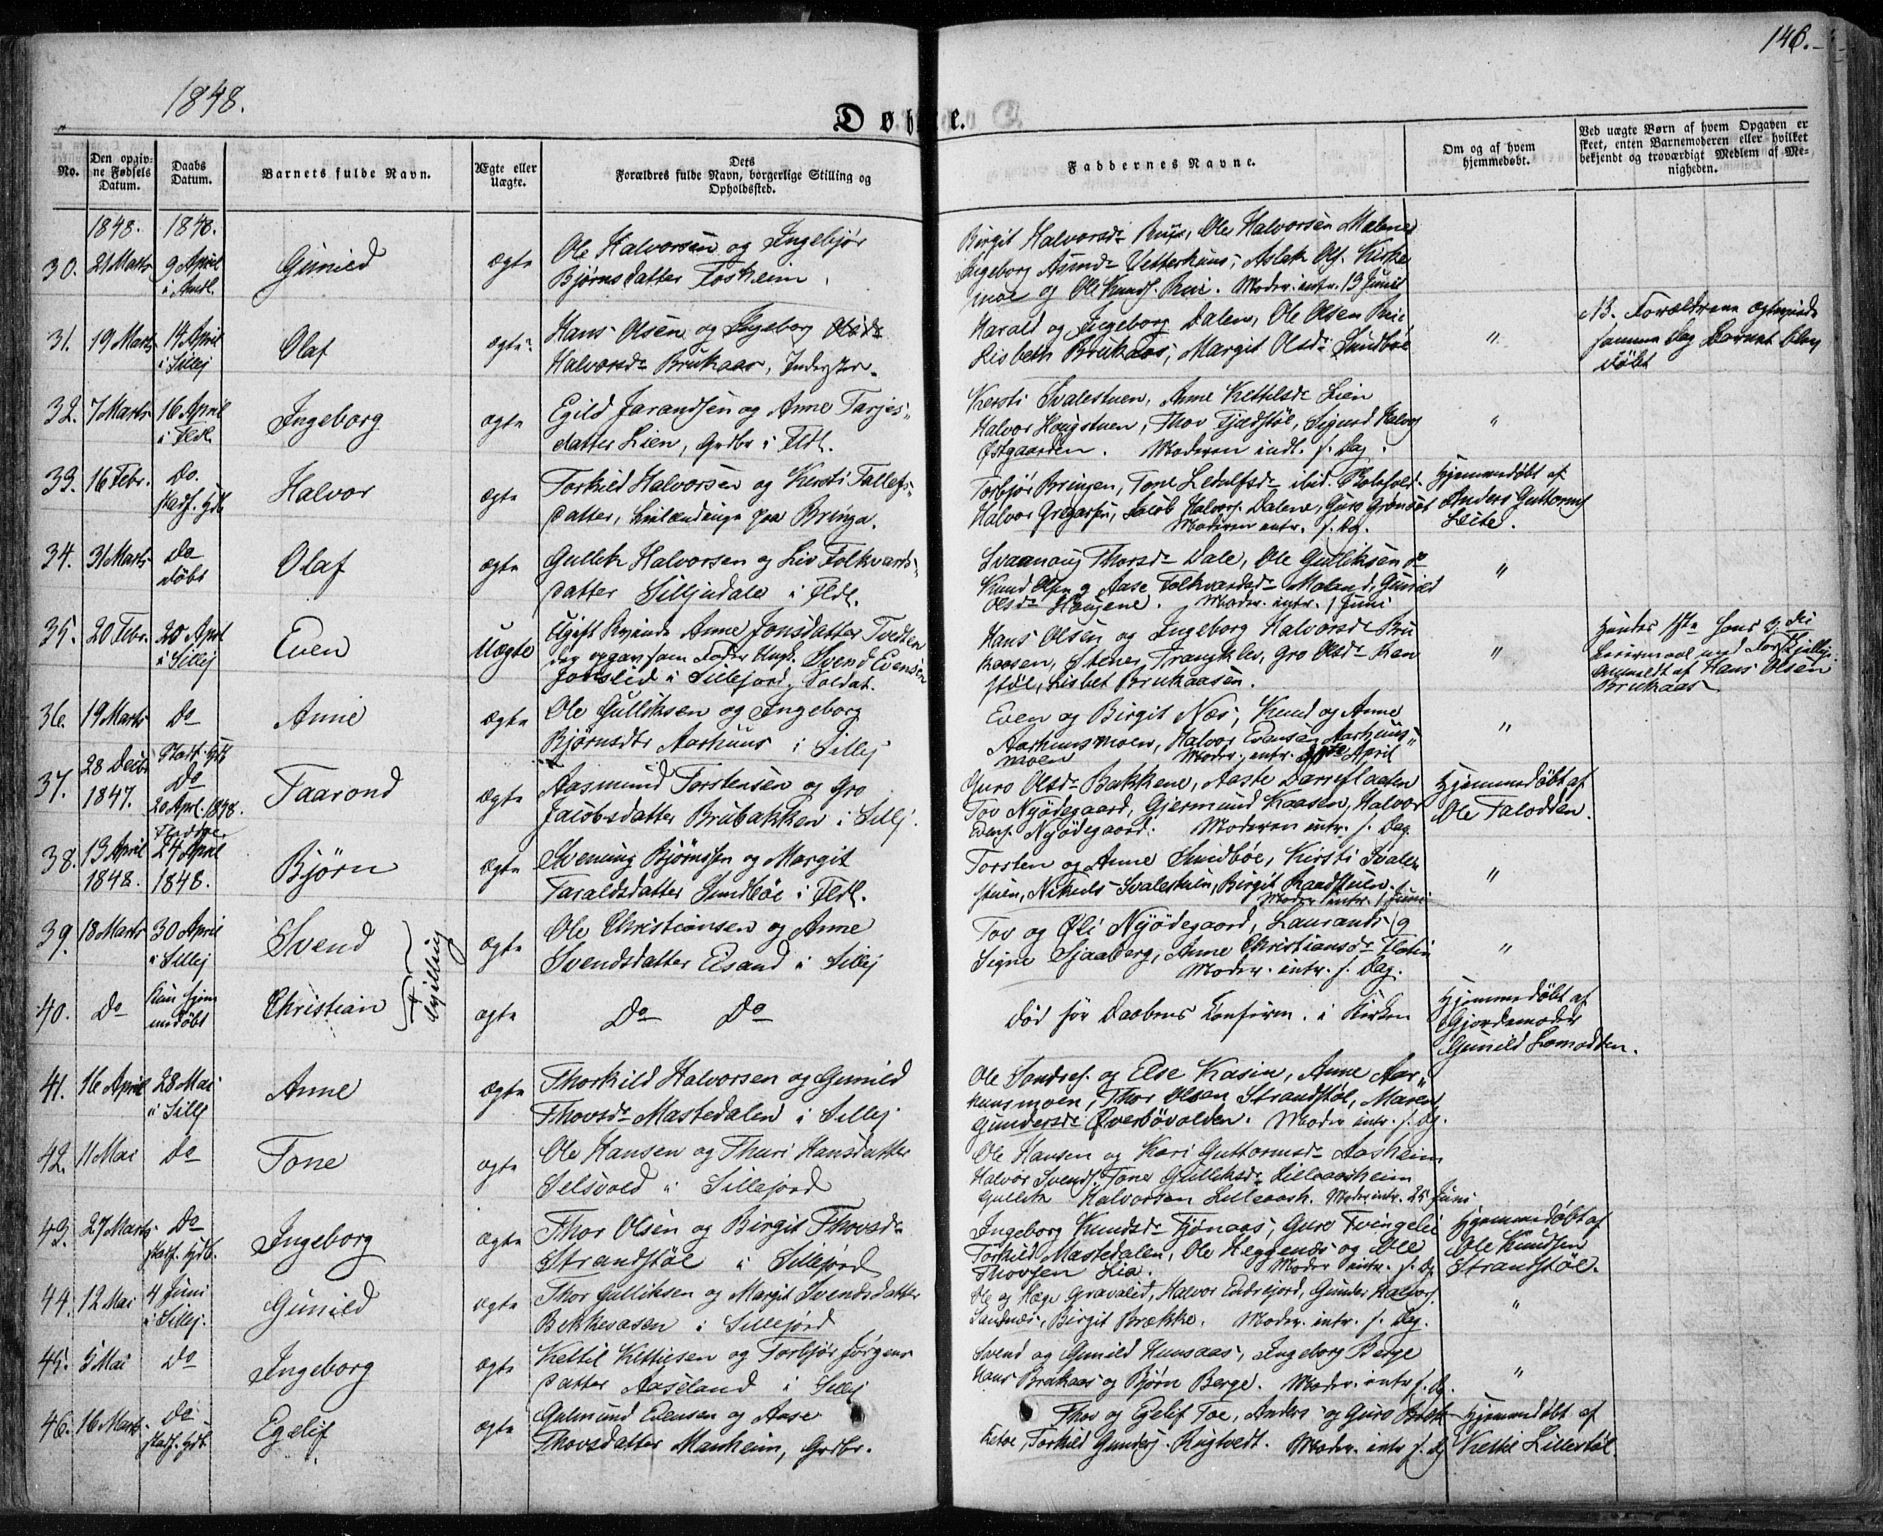 1848.
146.
Døbte.
No.
Den opgiv-
ne Fødsels
Datum.
Daabs
Datum.
Barnets fulde Navn.
Ægte eller
Uægte.
Dets
Forældres fulde Navn, borgerlige Stilling og
Opholdssted.
Faddernes Navne.
Om og af hvem
hjemmedøbt.
Ved uægte Børn af hvem Opgaven er
skeet, enten Barnemoderen eller hvilket
bekjendt og troværdigt Medlem af Me-
nigheden.
1848. 1848.
30. 21 Marts 9 April Gunild ægte
Ole Halvorsen og Ingebjør
Bjørnsdatter Foskeim
Birgit Halvorsdr Ole Halvorsen
Ingeborg Asmdr Vetterhuus, Aslak Ols. Kirke
moe og Ole Knuds. Rui. Moder. intr. 13 Junii
31. 19 Marts 14 April i Sillej Olaf ægte
Hans Olsen og Ingeborg
Halvorsdr Brukaas, Inderster
Harald og Ingeborg Dalen, Ole Olsen Rui
Lisbeth Brukaas, Margit Olsdr Sundbøe
"
NB. Forældrene
samme Dag Barnet blev
døbt
32. 7 Marts 16 April i Fldl. Ingeborg ægte
Egild Jarandsen og Anne Tarjes-
datter Lien, Grdbr i Fldl.
Kersti Svalestuen, Anne Kettilsdr Lien
Halvor Haugstuen, Thov Sigurd Halvors
Østgaarden. Moderen indl. s. Dag.
"
33. 16 Febr. Do. Stadf. Halvor ægte
Torkild Halvorsen og Kersti Tallefs-
datter, paa Bringa.
Torbjør Bringen, Tone ibid.
Halvor Gregarsen, Jacob Halvors. Dalene, Guro
Moderen intr. s. Dg.
Hjemmedøbt af
Anders Guttorms
Leite.
34. 31 Marts Do døbt Olaf ægte
Gullik Halvorsen og Liv Folkvards-
datter Silljudale i Fldl.
Svanaug Thorsdr Dale, Ole Gulliksen do
Knud Olsen og Aase Folkvardsdr Moland, Gunild
Olsdr Haugene. Moder. intr. 1 Juni
"
35. 20 Febr. 20 April i Sillej Even Uægte
Ugift Kvinde Anne Jonsdatter Tvedten
der opgav som Fader Ungk. Svend Evensen
i Sillejord, Soldat.
Hans Olsen og Ingeborg Halvorsdr Bru
kaasen, Stener Trangklev, Gro Olsdr Ken
støl, Lisbet Brukaasen.
"
Hendes 1ste hans
Leiermaal
Anmeldt af Hans Olsen
Brukaas
36. 19 Marts Do Anne ægte
Ole Gulliksen og Ingeborg
Bjørnsdtr Aarhuus i Sillej
Even og Birgit Næs, Knud og Anne
Aarhuusmoen, Halvor Evensen Aarhuus-
moen Moder. intr. April
"
37. 28 Decbr 1847. Stadf. Do 20 Apr. 1848. Taarond ægte
Aasmund Torstensen og Gro
Jacobsdatter Brubakken i Sillej
Guro Olsdr Bakkene, Aaste
Tov Nyødegaard, Gjermund Kaasen, Halvor
Nyødegaard. Moderen intr. s. Dag.
Hjemmedøbt af
Ole Talodden.
38. 13 April 1848. 24 April 1848. Bjørn ægte
Svenung Bjørnsen og Margit
Taraldsdatter Sundbøe i Fldl.
Torsten og Anne Sundbøe, Kirsti Svale
stuen, Svalestuen, Birgit
Moder intr. 1 Juni
"
39. 18 Marts 30 April i Sillej Svend Tvilling ægte
Ole Christiansen og Anne
Svendsdatter Eisand i Sillej
Tov og Øli Nyødegaard, Laurants og
Signe Sjaaberg, Anne Christiansdr Flatin
Moder. intr. s. Dag.
"
40. Do kun hjem
medøbt Christian ægte
Do Do
død før Daabens Confirm. i Kirken
Hjemmedøbt af
Gjordemoder
Gunild Lomodden.
41. 16 April 28 Mai i Sillej Anne ægte
Thorkild Halvorsen og Gunild
Thovsdr Mastedalen i Sillej
Ole og Else Kasin, Anne Aar
huusmoen, Thor Olsen Strandstøl, Maren
Gundersdr Øverbøvolden. Moder intr. s. Dg.
42. 11 Mai Do Tone ægte
Ole Hansen og Thuri Hansdatter
Selsvold i Sillejord
Ole Hansen og Kari Guttormsdr Aasheim
Halvor Svends. Tone Gulliksdr Lilleaasheim
Gullik Halvorsen Lilleaash. Moder intr. 25 Juni
43. 27 Marts Do Stadf. Hjdb. Ingeborg ægte
Thor Olsen og Birgit Thovsdr
Strandstøl i Sillejord
Ingeborg Knudsdr Tjønaas, Guro Tvingelei
Torkild Mastedalen, Ole Heggenes og Ole
Thovsen Lia. Moder intr. s. Dg
Hjemmedøbt af
Ole Knudsen
Strandstøl.
44. 12 Mai 4 Juni i Sillej. Gunild ægte
Thor Gulliksen og Margit Svendsdatter
Bekkevasen i Sillejord
Ole og Hæge Gravalid, Halvor Gunder Halvors.
Sandnæs, Birgit Brække. Moder. intr. s. Dg.
"
45. 5 Mai Do Ingeborg ægte
Kettil Kittilsen og Torbjør Jørgens
datter Aaseland i Sillej
Svend og Gunild Huusaas, Ingeborg Berge
Hans Brukaas og Bjørn Berge. Moder. intr s. Dg.
"
46. 16 Marts Do Stadf. Hjdb. Egelif ægte
Gulmund Evensen og Aase
Thovsdatter Manheim, Grdbr.
Thov og Egelif Toe, Anders og Guro
Torkild Gunders. Rugtvedt. Moder. intr s. Dg
Hjemmedøbt af
Kettil Lillestøl.